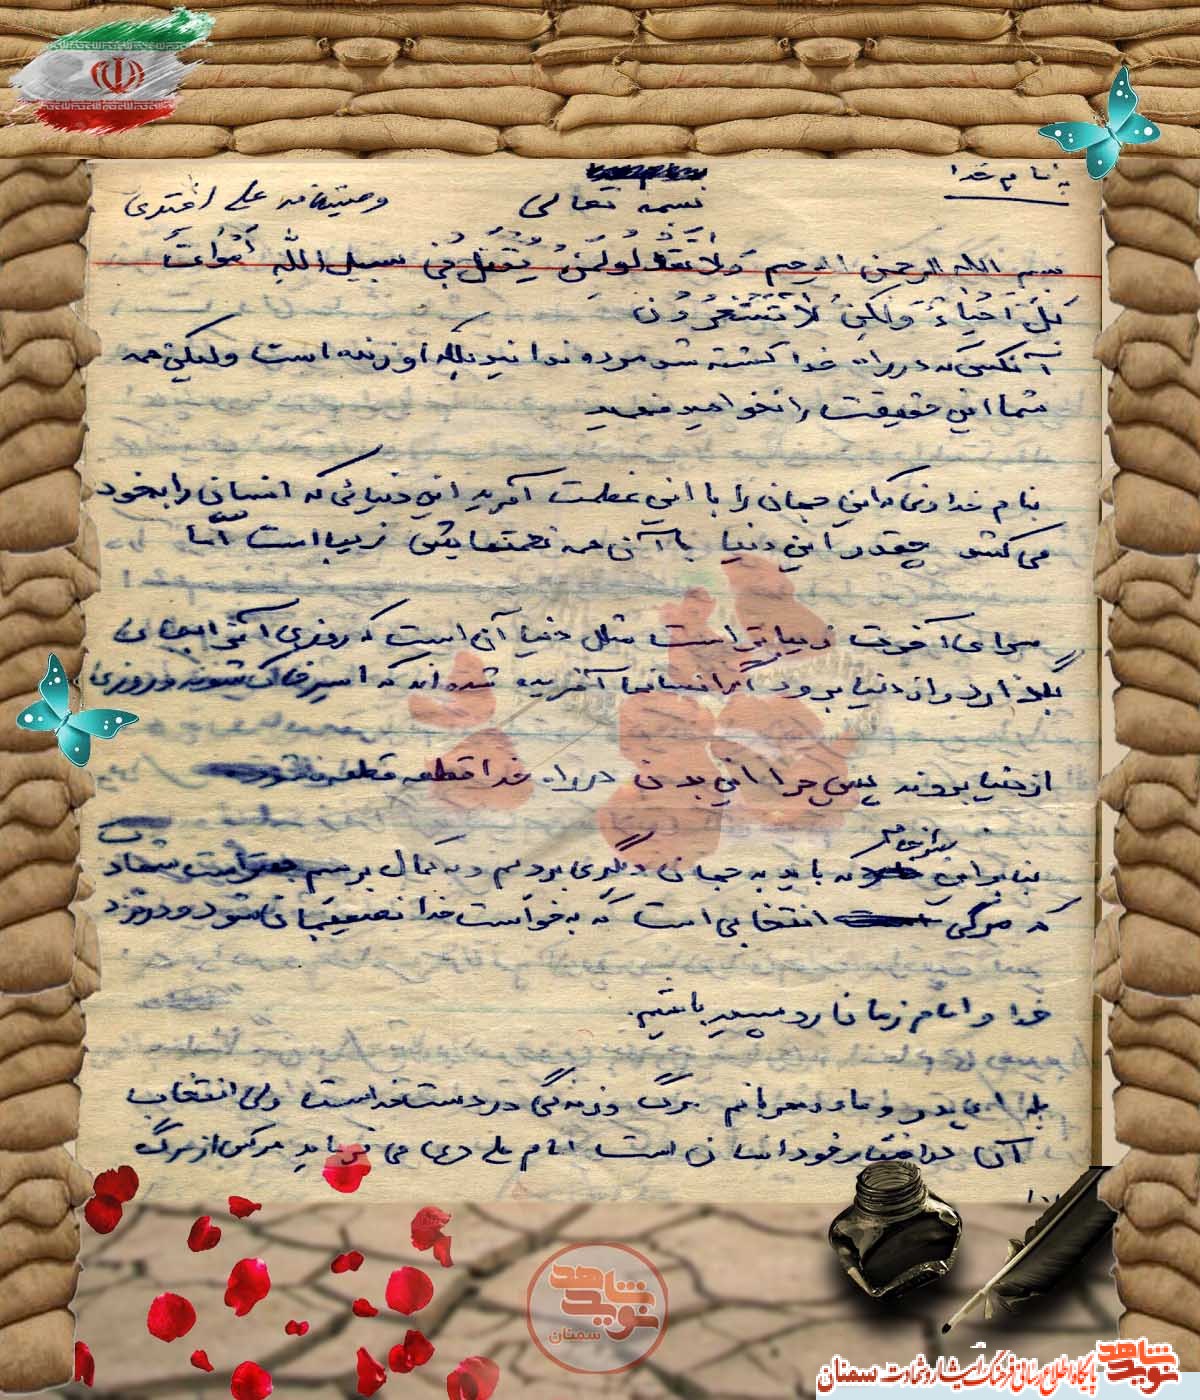 به نام خدا
بسمه تعالی
وصیتنامه علی
بسم الله الرحمن الرحیم وَلاَ تَقُولُوا لِمَنْ يُقْتَلُ فِی سبیل اللّهِ أَمْوَاتٌ
بَلْ اَحْيَاءٌ وَلَكِنْ لاَ تَشْعُرُونَ
آنکسی که در راه خدا کشته شد مرده ندانید بلکه او زنده است ولیکن همه
شما این حقیقت را نخواهید فهمید
بنام خداوندی که این جهان را با این عظمت آفرید این دنیائی که انسان را بخود
می کشد چقدر این دنیا با آن همه نعمتهایش زیبا است امّا
سرای آخرت زیباتر است مثل دنیا آن است که روزی آنرا بجای
بگذارد و از دنیا برود اگر انسانها آفریده شده اند که اسیر خاک شوند و روزی
از دنیا بروند پس چرا این بدن در راه خدا قطعه قطعه نشود
بنابراین که باید به جهان دیگری برویم و به کمال برسیم است
که مرگی انتخابی است که به خواست خدا نصیبمان شود و در نزد
خدا و امام زمان رو سپید باشیم.
بله ای پدر و مادر مهربانم مرگ و زندگی در دست خداست ولی انتخاب
آن در اختیار خود انسان است امام علی (ع) می فرماید هر کس از مرگ
نوید شاهد
سمنان
نوید شاهد
پایگاه اطلاع رسانی فرهنگ ایثار و شهادت سمنان